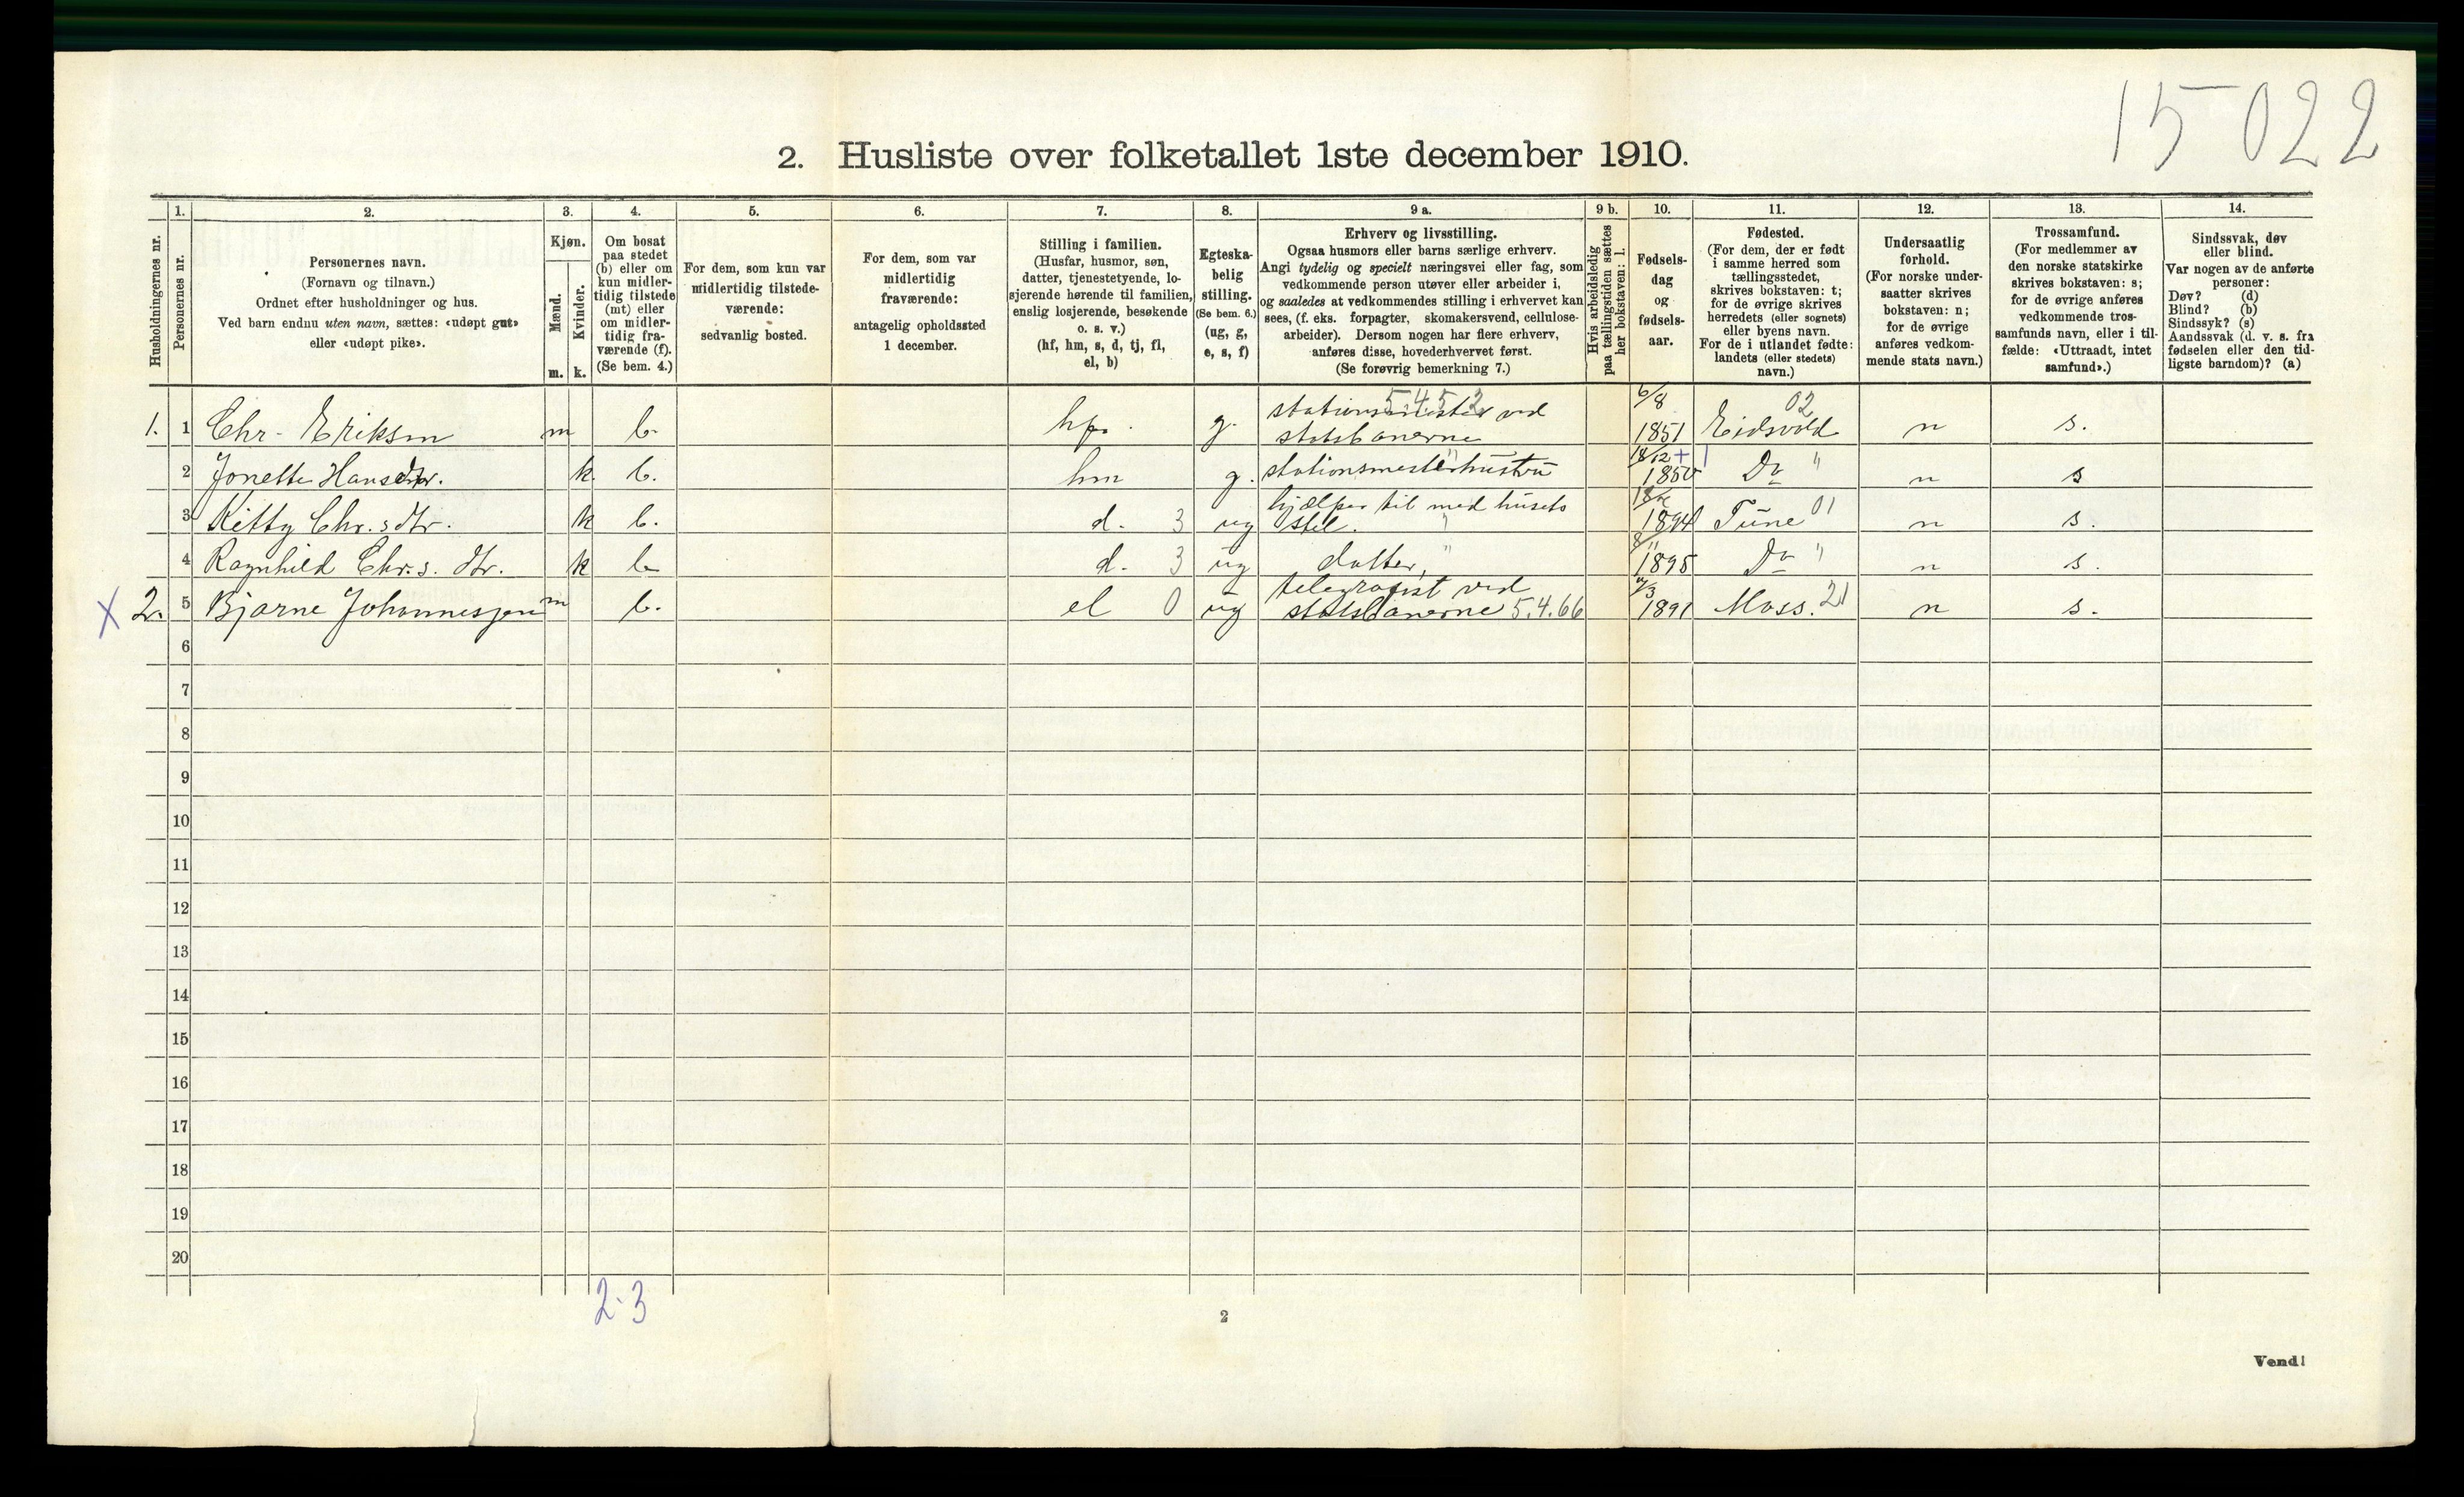 15022
2. Husliste over folketallet 1ste december 1910.
Husholdningernes nr.
1.
Personernes nr.
2.
Personernes navn.
(Fornavn og tilnavn.)
Ordnet efter husholdninger og hus.
Ved barn endnu uten navn, sættes: «udøpt gut»
eller «udøpt pike».
3.
Kjøn.
Mænd.
Kvinder.
m. k.
4.
Om bosat
paa stedet
(b) eller om
kun midler-
tidig tilstede
(mt) eller
om midler-
tidig fra-
værende (f).
(Se bem. 4.)
5.
For dem, som kun var
midlertidig tilstede-
værende:
sedvanlig bosted.
6.
For dem, som var
midlertidig
fraværende:
antagelig opholdssted
1 december.
7.
Stilling i familien.
(Husfar, husmor, søn,
datter, tjenestetyende, lo-
sjerende hørende til familien,
enslig losjerende, besøkende
o. s. v.)
(hf, hm, s, d, tj, fl,
el, b)
8.
Egteska-
belig
stilling.
(Se bem. 6.)
(ug, g,
e, s, f)
9 a.
Erhverv og livsstilling.
Ogsaa husmors eller barns særlige erhverv.
Angi tydelig og specielt næringsvei eller fag, som
vedkommende person utøver eller arbeider i,
og saaledes at vedkommendes stilling i erhvervet kan
sees, (f. eks. forpagter, skomakersvend, cellulose-
arbeider). Dersom nogen har flere erhverv,
anføres disse, hovederhvervet først.
(Se forøvrig bemerkning 7.)
9 b.
Hvis arbeidsledig
paa tællingstiden sættes
her bokstaven: l.
10.
Fødsels-
dag
og
fødsels-
aar.
11.
Fødested.
(For dem, der er født
i samme herred som
tællingsstedet,
skrives bokstaven: t;
for de øvrige skrives
herredets (eller sognets)
eller byens navn.
For de i utlandet fødte:
landets (eller stedets)
navn.)
12.
Undersaatlig
forhold.
(For norske under-
saatter skrives
bokstaven: n;
for de øvrige
anføres vedkom-
mende stats navn.)
13.
Trossamfund.
(For medlemmer av
den norske statskirke
skrives bokstaven: s;
for de øvrige anføres
vedkommende tros-
samfunds navn, eller i til-
fælde: «Uttraadt, intet
samfund».)
14.
Sindssvak, døv
eller blind.
Var nogen av de anførte
personer:
Døv? (d)
Blind? (b)
Sindssyk? (s)
Aandssvak (d. v. s. fra
fødselen eller den tid-
ligste barndom)? (a)
1. 1 Chr. Eriksen m b. hf. g. stationsmester ved statsbanerne 5452 6/8 1851 Eidsvold 02 n s.
2 Jonette Hansdtr. k. b. hm g. stationsmesterhustru " 18/12 + 1850 Do " n s
3 Kitty Chr.sdtr. k b. d. 3 ug hjælper til med husets stel. " 1894 Tune 01 n s.
4 Ragnhild Chr.s.dtr. k b d. 3 ug datter, " 1895 Do " n s.
X 2. 5 Bjarne Johannesjen m b. el 0 ug telegrafist ved statsbanerne 5.4.66 1891 Moss. 21 n s.
6
7
8
9
10
11
12
13
14
15
16
17
18
19
20
2·3
2
Vend!